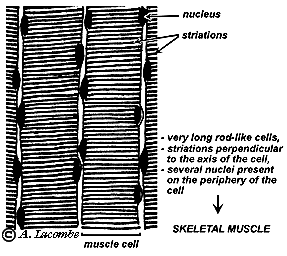 nucleus
striations
- very long rod-like cells,
- striations perpendicular
to the axis of the cell,
- several nuclei present
on the periphery of the
cell
SKELETAL MUSCLE
© A. Lacombe
muscle cell